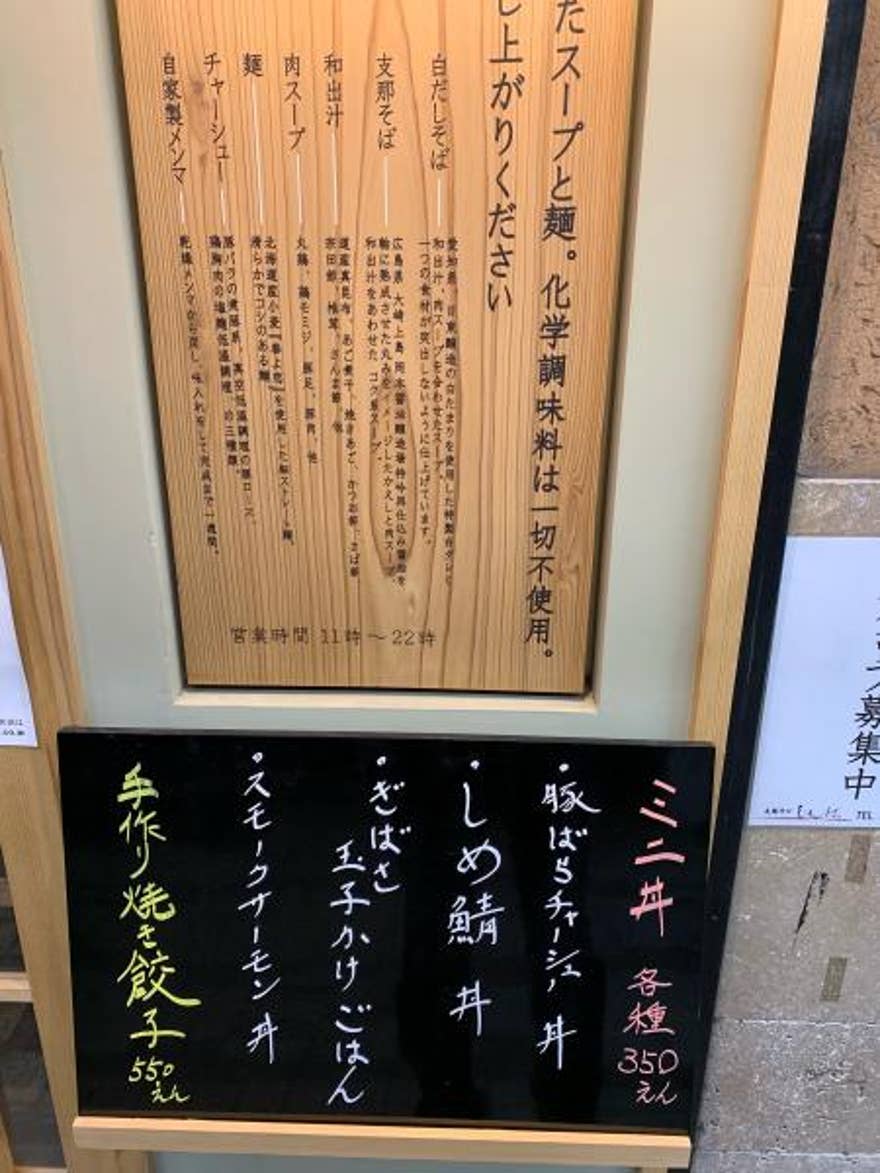 たスープと麺。化学調味料は一切不使用。
し上がりください
白だしそば
愛知県、日東醸造の白たまりを使用した特製白ダレに
和出汁、肉スープを合わせたスープ。
一つの食材が突出しないように仕上げています。
支那そば
広島県 大崎上島 岡本醤油醸造場特吟再仕込み醤油を
軸に熟成させた丸みをイメージしたかえしと肉スープ、
和出汁をあわせた、コク系スープ。
和出汁
道産真昆布、あご煮干、焼きあご、かつお節、さば節
宗田節、椎茸、さんま節、他
肉スープ
丸鶏、鶏モミジ、豚足、豚肉、他
麺
北海道産小麦『春よ恋』を使用した細ストレート麺。
滑らかでコシのある麺
チャーシュー
豚バラの煮豚系、真空低温調理の豚ロース、
鶏胸肉の塩麹低温調理、の三種類。
自家製メンマ
乾燥メンマから戻し、味入れをして完成まで一週間。
営業時間 11時～22時
ミニ丼 各種 350えん
・豚ばらチャーシュー丼
・しめ鯖丼
・ぎばさ
玉子かけごはん
・スモークサーモン丼
手作り焼き餃子 550えん
募集中